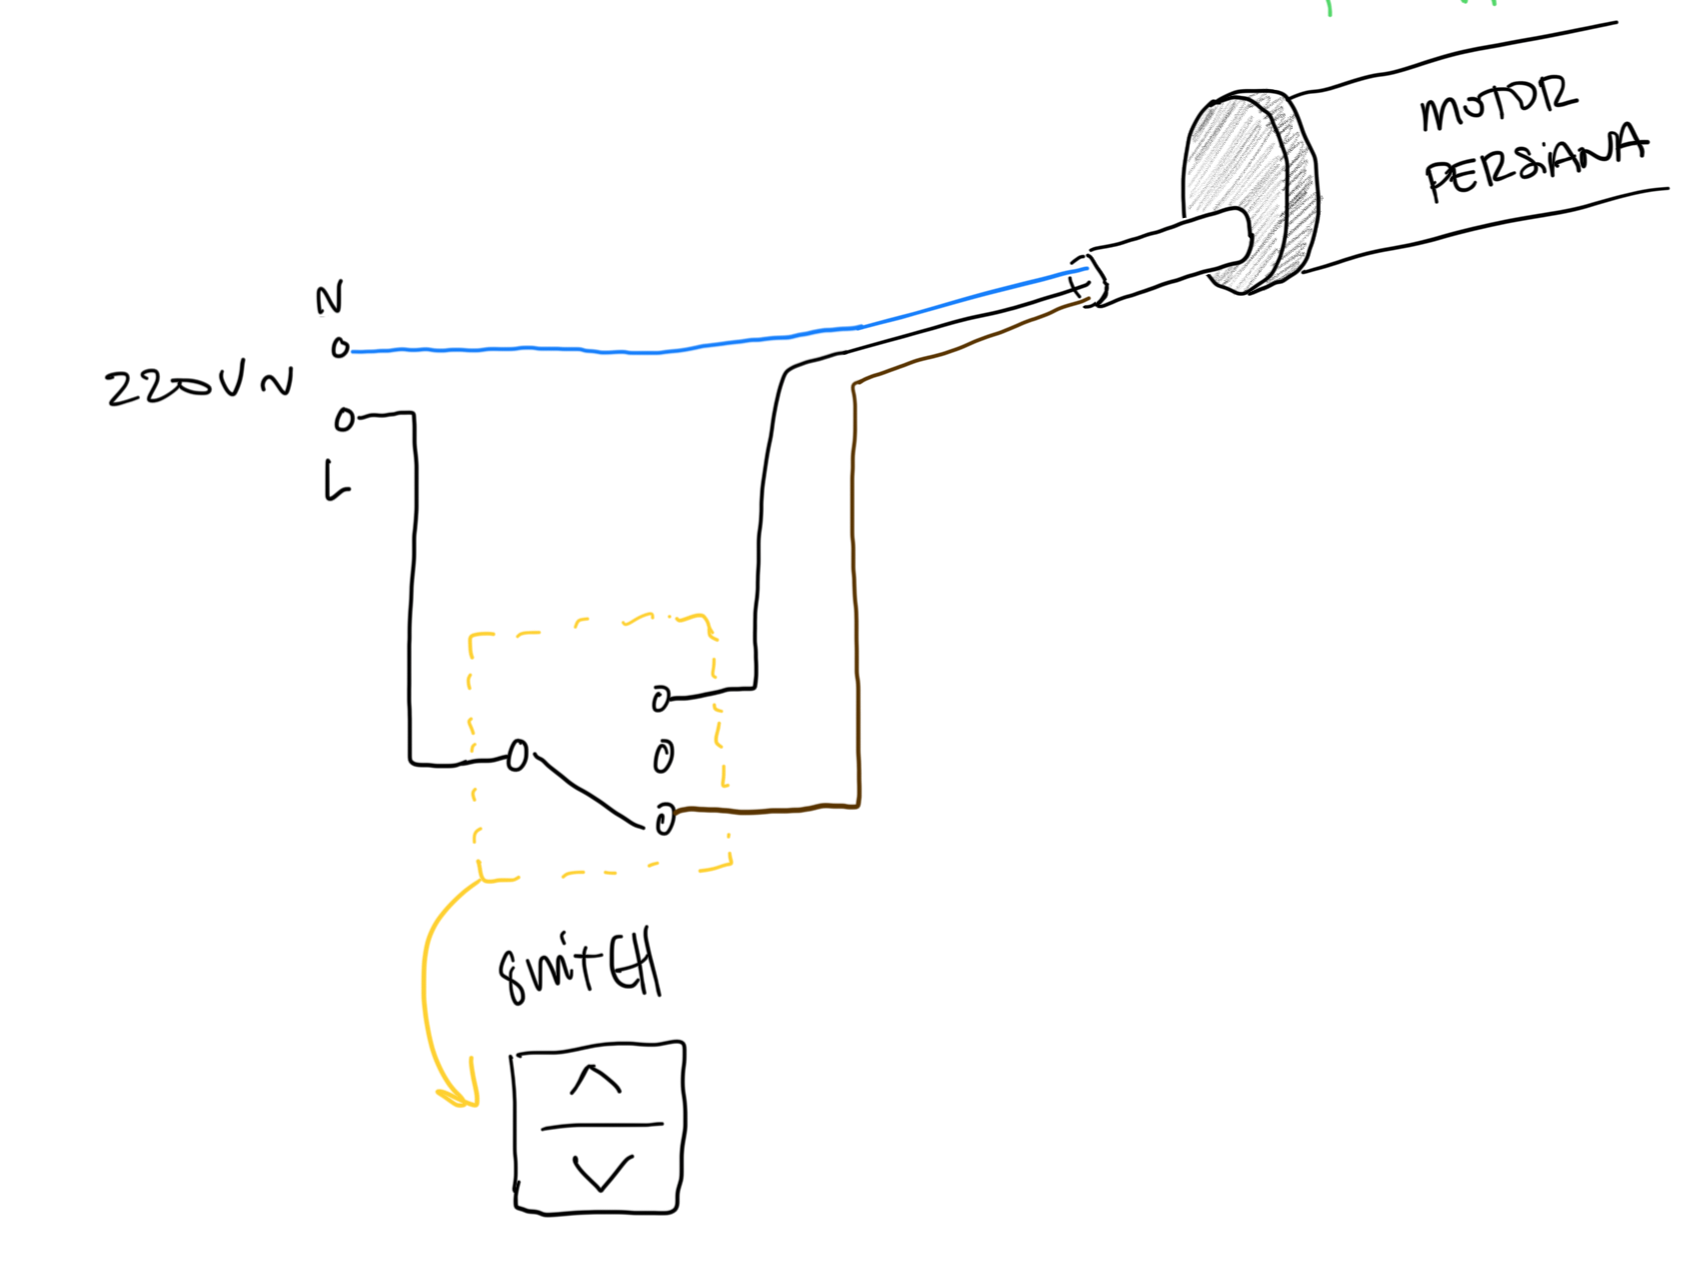 MOTOR
PERSIANA
N
220V~
L
SWITCH